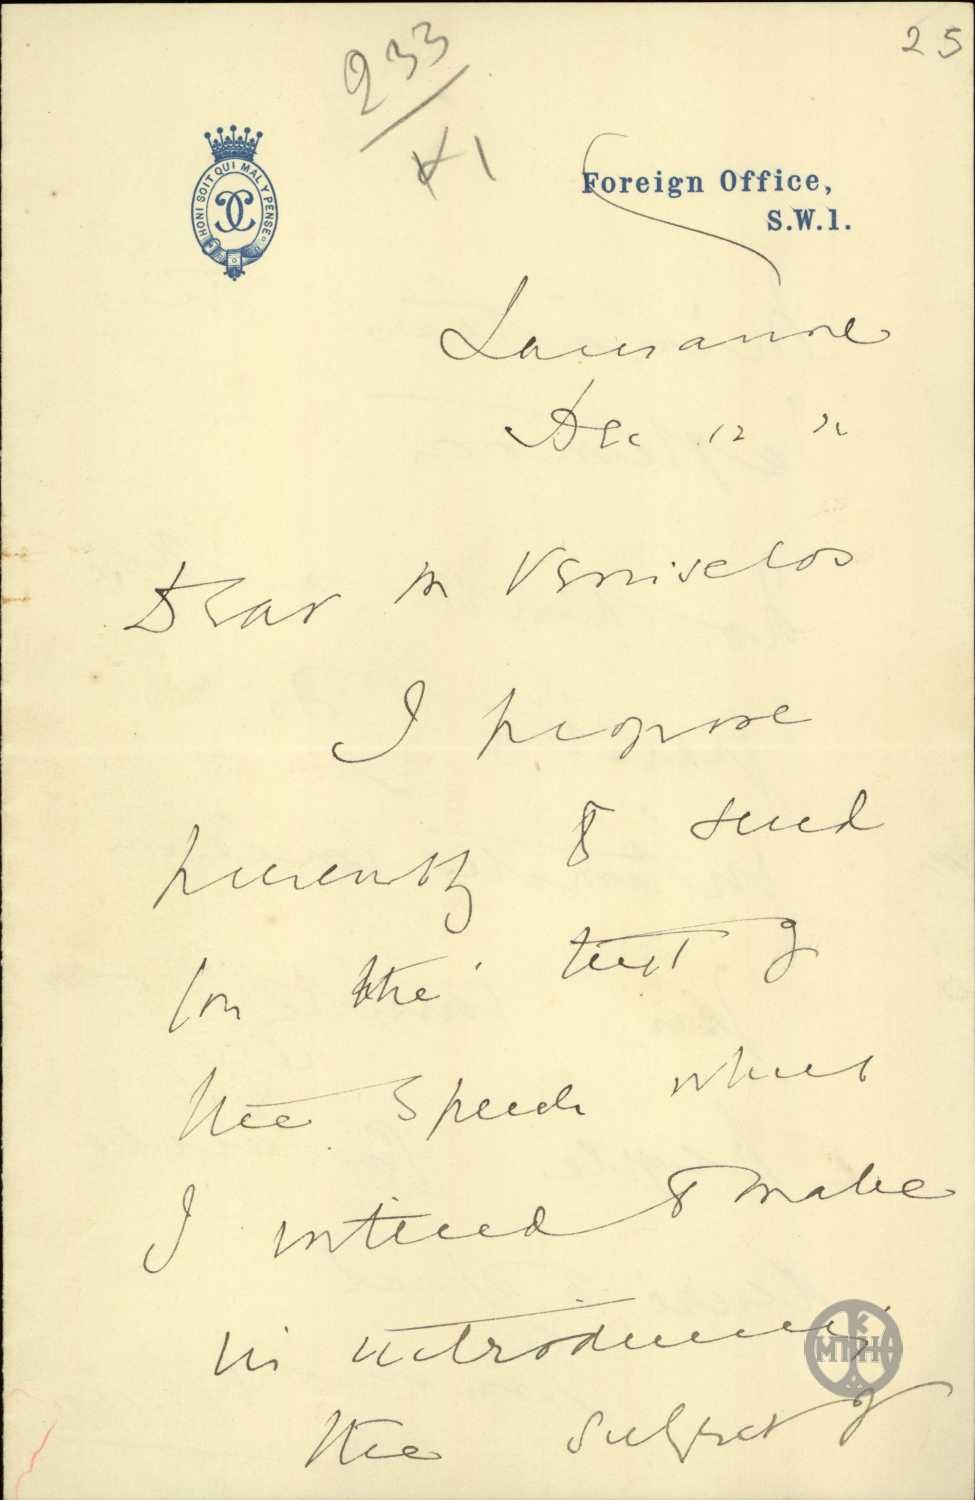 25
233
XI
HONI SOIT QUI MAL Y PENSE
Foreign Office,
S.W.1.
Lausanne
Dec 12 22
Dear M Veniselos
I propose
presently to send
you the text of
the speech which
I intend to make
in introducing
the subject of
ΜΠΗΚ